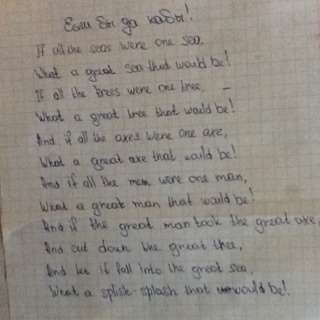 Если бы да кабы!
If all the seas were one sea,
What a great sea that would be!
If all the trees were one tree, –
What a great tree that would be!
And if all the axes were one axe,
What a great axe that would be!
And if all the men were one man,
What a great man that would be!
And if the great man took the great axe,
And cut down the great tree,
And let it fall into the great sea,
What a splish-splash that would be!